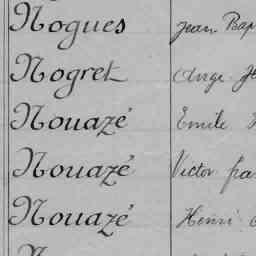 Nogues Jean Bap
Nogret Ange
Nouazé Emile
Nouazé Victor
Nouazé Henri